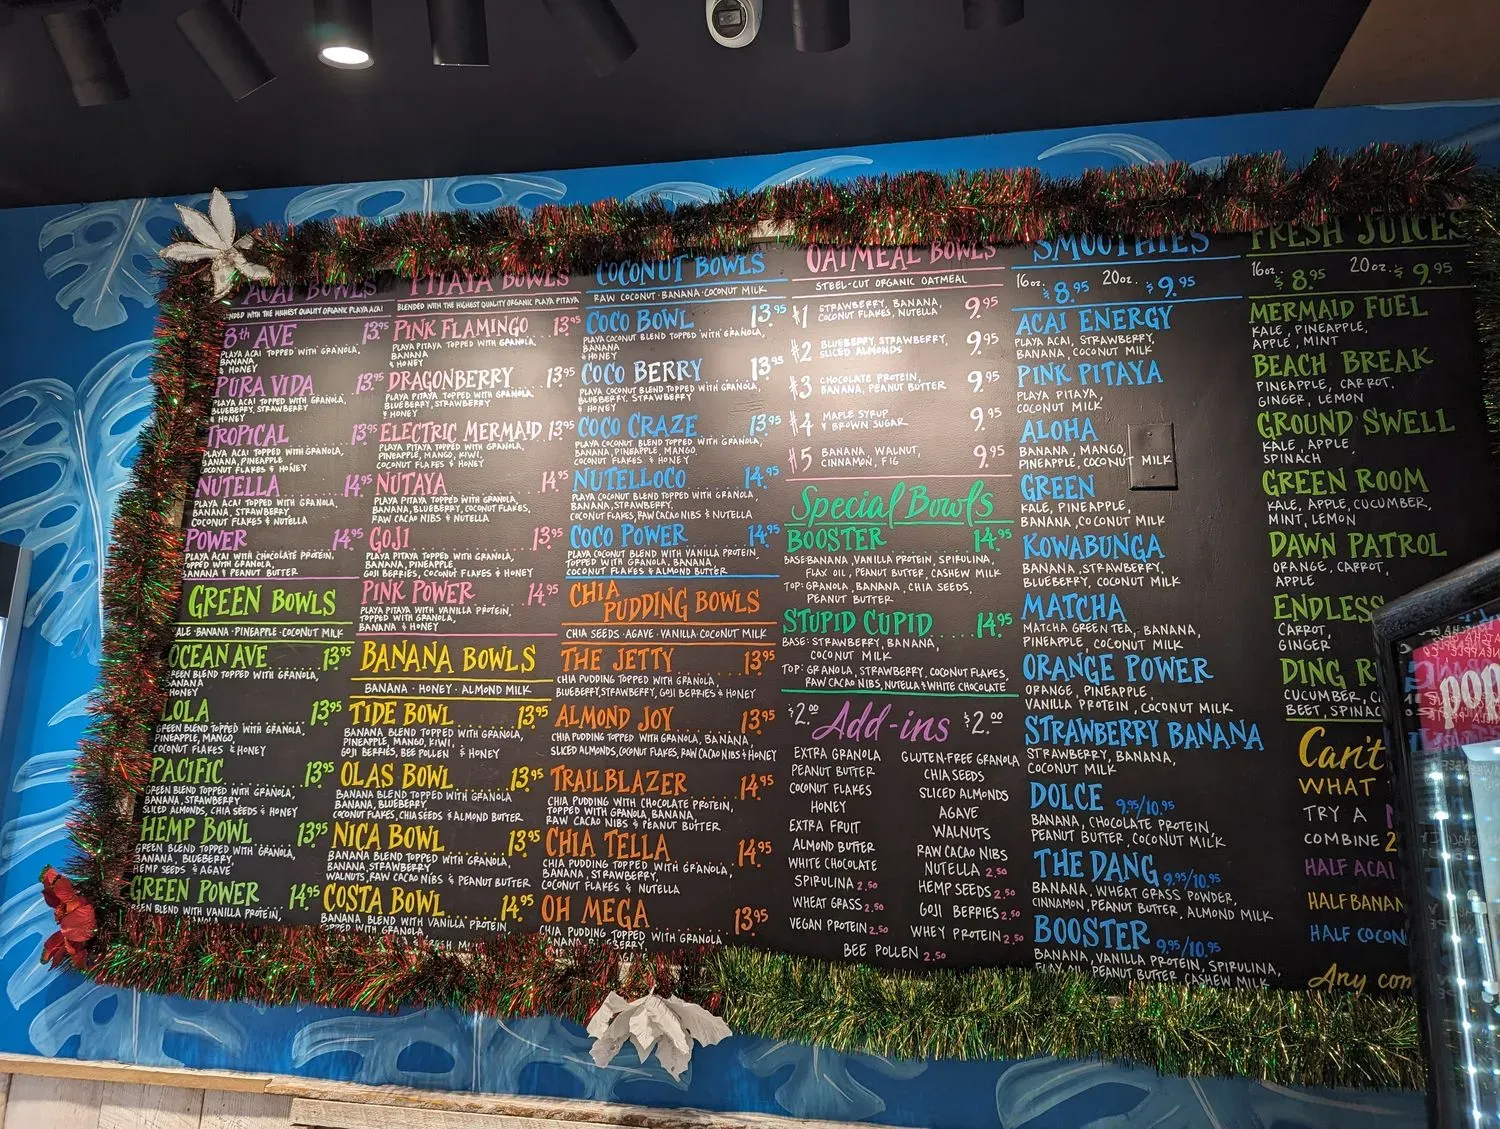 ACAI BOWLS
BLENDED WITH THE HIGHEST QUALITY ORGANIC PLAYA ACAI
8th AVE 13.95
PLAYA ACAI TOPPED WITH GRANOLA,
BANANA
& HONEY
PURA VIDA 13.95
PLAYA ACAI TOPPED WITH GRANOLA,
BLUEBERRY, STRAWBERRY
& HONEY
TROPICAL 13.95
PLAYA ACAI TOPPED WITH GRANOLA,
BANANA, PINEAPPLE
COCONUT FLAKES & HONEY
NUTELLA 14.95
PLAYA ACAI TOPPED WITH GRANOLA,
BANANA, STRAWBERRY,
COCONUT FLAKES & NUTELLA
POWER 14.95
PLAYA ACAI WITH CHOCOLATE PROTEIN,
TOPPED WITH GRANOLA,
BANANA & PEANUT BUTTER
GREEN BOWLS
KALE · BANANA · PINEAPPLE · COCONUT MILK
OCEAN AVE 13.95
GREEN BLEND TOPPED WITH GRANOLA,
BANANA
HONEY
LOLA 13.95
GREEN BLEND TOPPED WITH GRANOLA,
PINEAPPLE, MANGO,
COCONUT FLAKES & HONEY
PACIFIC 13.95
GREEN BLEND TOPPED WITH GRANOLA,
BANANA, STRAWBERRY
SLICED ALMONDS, CHIA SEEDS & HONEY
HEMP BOWL 13.95
GREEN BLEND TOPPED WITH GRANOLA,
BANANA, BLUEBERRY,
HEMP SEEDS & AGAVE
GREEN POWER 14.95
GREEN BLEND WITH VANILLA PROTEIN,
PITAYA BOWLS
BLENDED WITH THE HIGHEST QUALITY ORGANIC PLAYA PITAYA
PINK FLAMINGO 13.95
PLAYA PITAYA TOPPED WITH GRANOLA,
BANANA
& HONEY
DRAGONBERRY 13.95
PLAYA PITAYA TOPPED WITH GRANOLA,
BLUEBERRY, STRAWBERRY
& HONEY
ELECTRIC MERMAID 13.95
PLAYA PITAYA TOPPED WITH GRANOLA,
PINEAPPLE, MANGO, KIWI,
COCONUT FLAKES & HONEY
NUTAYA 14.95
PLAYA PITAYA TOPPED WITH GRANOLA,
BANANA, BLUEBERRY, COCONUT FLAKES,
RAW CACAO NIBS & NUTELLA
GOJI 13.95
PLAYA PITAYA TOPPED WITH GRANOLA,
BANANA, PINEAPPLE
GOJI BERRIES, COCONUT FLAKES & HONEY
PINK POWER 14.95
PLAYA PITAYA WITH VANILLA PROTEIN,
TOPPED WITH GRANOLA,
BANANA & HONEY
BANANA BOWLS
BANANA · HONEY · ALMOND MILK
TIDE BOWL 13.95
BANANA BLEND TOPPED WITH GRANOLA,
PINEAPPLE, MANGO, KIWI,
GOJI BERRIES, BEE POLLEN & HONEY
OLAS BOWL 13.95
BANANA BLEND TOPPED WITH GRANOLA
BANANA, BLUEBERRY
COCONUT FLAKES, CHIA SEEDS & ALMOND BUTTER
NICA BOWL 13.95
BANANA BLEND TOPPED WITH GRANOLA,
BANANA, STRAWBERRY
WALNUTS, RAW CACAO NIBS & PEANUT BUTTER
COSTA BOWL 14.95
BANANA BLEND WITH VANILLA PROTEIN,
TOPPED WITH GRANOLA,
COCONUT BOWLS
RAW COCONUT · BANANA · COCONUT MILK
COCO BOWL 13.95
PLAYA COCONUT BLEND TOPPED WITH GRANOLA,
BANANA
& HONEY
COCO BERRY 13.95
PLAYA COCONUT BLEND TOPPED WITH GRANOLA,
BLUEBERRY, STRAWBERRY
& HONEY
COCO CRAZE 13.95
PLAYA COCONUT BLEND TOPPED WITH GRANOLA,
BANANA, PINEAPPLE, MANGO,
COCONUT FLAKES & HONEY
NUTELLOCO 14.95
PLAYA COCONUT BLEND TOPPED WITH GRANOLA,
BANANA, STRAWBERRY,
COCONUT FLAKES, RAW CACAO NIBS & NUTELLA
COCO POWER 14.95
PLAYA COCONUT BLEND WITH VANILLA PROTEIN,
TOPPED WITH GRANOLA, BANANA
COCONUT FLAKES & ALMOND BUTTER
CHIA PUDDING BOWLS
CHIA SEEDS · AGAVE · VANILLA · COCONUT MILK
THE JETTY 13.95
CHIA PUDDING TOPPED WITH GRANOLA,
BLUEBERRY, STRAWBERRY, GOJI BERRIES & HONEY
ALMOND JOY 13.95
CHIA PUDDING TOPPED WITH GRANOLA, BANANA,
SLICED ALMONDS, COCONUT FLAKES, RAW CACAO NIBS & HONEY
TRAILBLAZER 14.95
CHIA PUDDING WITH CHOCOLATE PROTEIN,
TOPPED WITH GRANOLA, BANANA,
RAW CACAO NIBS & PEANUT BUTTER
CHIA TELLA 14.95
CHIA PUDDING TOPPED WITH GRANOLA,
BANANA, STRAWBERRY,
COCONUT FLAKES & NUTELLA
OH MEGA 13.95
CHIA PUDDING TOPPED WITH GRANOLA
BANANA, BLUEBERRY,
OATMEAL BOWLS
STEEL-CUT ORGANIC OATMEAL
#1 STRAWBERRY, BANANA, 9.95
COCONUT FLAKES, NUTELLA
#2 BLUEBERRY, STRAWBERRY, 9.95
SLICED ALMONDS
#3 CHOCOLATE PROTEIN, 9.95
BANANA, PEANUT BUTTER
#4 MAPLE SYRUP 9.95
& BROWN SUGAR
#5 BANANA, WALNUT, 9.95
CINNAMON, FIG
Special Bowls
BOOSTER 14.95
BASE: BANANA, VANILLA PROTEIN, SPIRULINA,
FLAX OIL, PEANUT BUTTER, CASHEW MILK
TOP: GRANOLA, BANANA, CHIA SEEDS,
PEANUT BUTTER
STUPID CUPID 14.95
BASE: STRAWBERRY, BANANA,
COCONUT MILK
TOP: GRANOLA, STRAWBERRY, COCONUT FLAKES,
RAW CACAO NIBS, NUTELLA & WHITE CHOCOLATE
$2.00 Add-ins $2.00
EXTRA GRANOLA
PEANUT BUTTER
COCONUT FLAKES
HONEY
EXTRA FRUIT
ALMOND BUTTER
WHITE CHOCOLATE
SPIRULINA 2.50
WHEAT GRASS 2.50
VEGAN PROTEIN 2.50
GLUTEN-FREE GRANOLA
CHIA SEEDS
SLICED ALMONDS
AGAVE
WALNUTS
RAW CACAO NIBS
NUTELLA 2.50
HEMP SEEDS 2.50
GOJI BERRIES 2.50
WHEY PROTEIN 2.50
BEE POLLEN 2.50
SMOOTHIES
16oz. $8.95 20oz. $9.95
ACAI ENERGY
PLAYA ACAI, STRAWBERRY,
BANANA, COCONUT MILK
PINK PITAYA
PLAYA PITAYA,
COCONUT MILK
ALOHA
BANANA, MANGO,
PINEAPPLE, COCONUT MILK
GREEN
KALE, PINEAPPLE,
BANANA, COCONUT MILK
KOWABUNGA
BANANA, STRAWBERRY,
BLUEBERRY, COCONUT MILK
MATCHA
MATCHA GREEN TEA, BANANA,
PINEAPPLE, COCONUT MILK
ORANGE POWER
ORANGE, PINEAPPLE,
VANILLA PROTEIN, COCONUT MILK
STRAWBERRY BANANA
STRAWBERRY, BANANA,
COCONUT MILK
DOLCE 9.95/10.95
BANANA, CHOCOLATE PROTEIN,
PEANUT BUTTER, COCONUT MILK
THE DANG 9.95/10.95
BANANA, WHEAT GRASS POWDER,
CINNAMON, PEANUT BUTTER, ALMOND MILK
BOOSTER 9.95/10.95
BANANA, VANILLA PROTEIN, SPIRULINA,
FLAX OIL, PEANUT BUTTER, CASHEW MILK
FRESH JUICES
16oz. $8.95 20oz. $9.95
MERMAID FUEL
KALE, PINEAPPLE,
APPLE, MINT
BEACH BREAK
PINEAPPLE, CARROT,
GINGER, LEMON
GROUND SWELL
KALE, APPLE,
SPINACH
GREEN ROOM
KALE, APPLE, CUCUMBER,
MINT, LEMON
DAWN PATROL
ORANGE, CARROT,
APPLE
ENDLESS
CARROT,
GINGER
DING R
CUCUMBER, C
BEET, SPINAC
Can't
WHAT
TRY A
COMBINE 2
HALF ACAI
HALF BANAN
HALF COCON
Any com